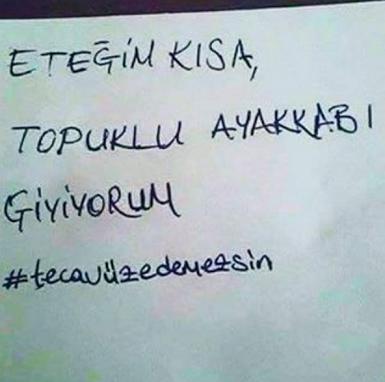 ETEĞİM KISA,
TOPUKLU AYAKKABI
GİYİYORUM
#tecavüzedemezsin